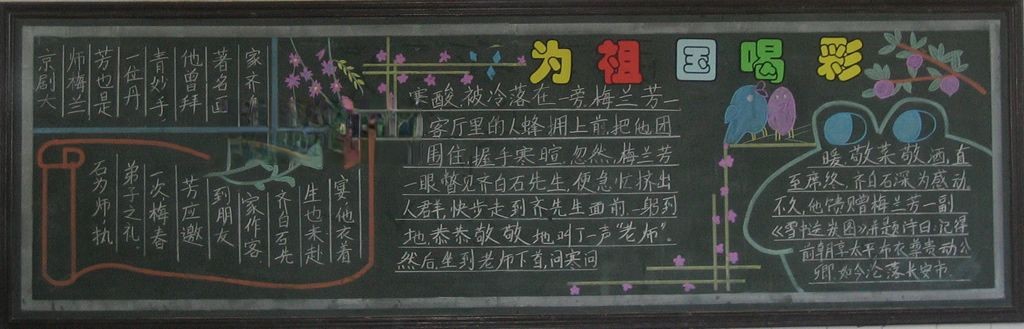 为祖国喝彩
京剧大
师梅兰
芳也是
一位丹
青妙手
他曾拜
著名画
家齐
石为师执
弟子之礼
一次梅春
芳应邀
到朋友
家作客
齐白石先
生也来赴
宴他衣着
寒酸,被冷落在一旁梅兰芳一
客厅里的人蜂拥上前,把他团
围住,握手寒暄,忽然,梅兰芳
一眼瞥见齐白石先生,便急忙挤出
人群,快步走到齐先生面前,躬到
地,恭恭敬敬地叫了一声“老师”.
然后坐到老师下首,问寒问
暖,敬菜敬酒,直
至席终,齐白石深为感动,
不久,他馈赠梅兰芳一副
《雪中送炭图》并题诗曰,记得
前朝享太平布衣尊贵动公
卿如今沦落长安市.